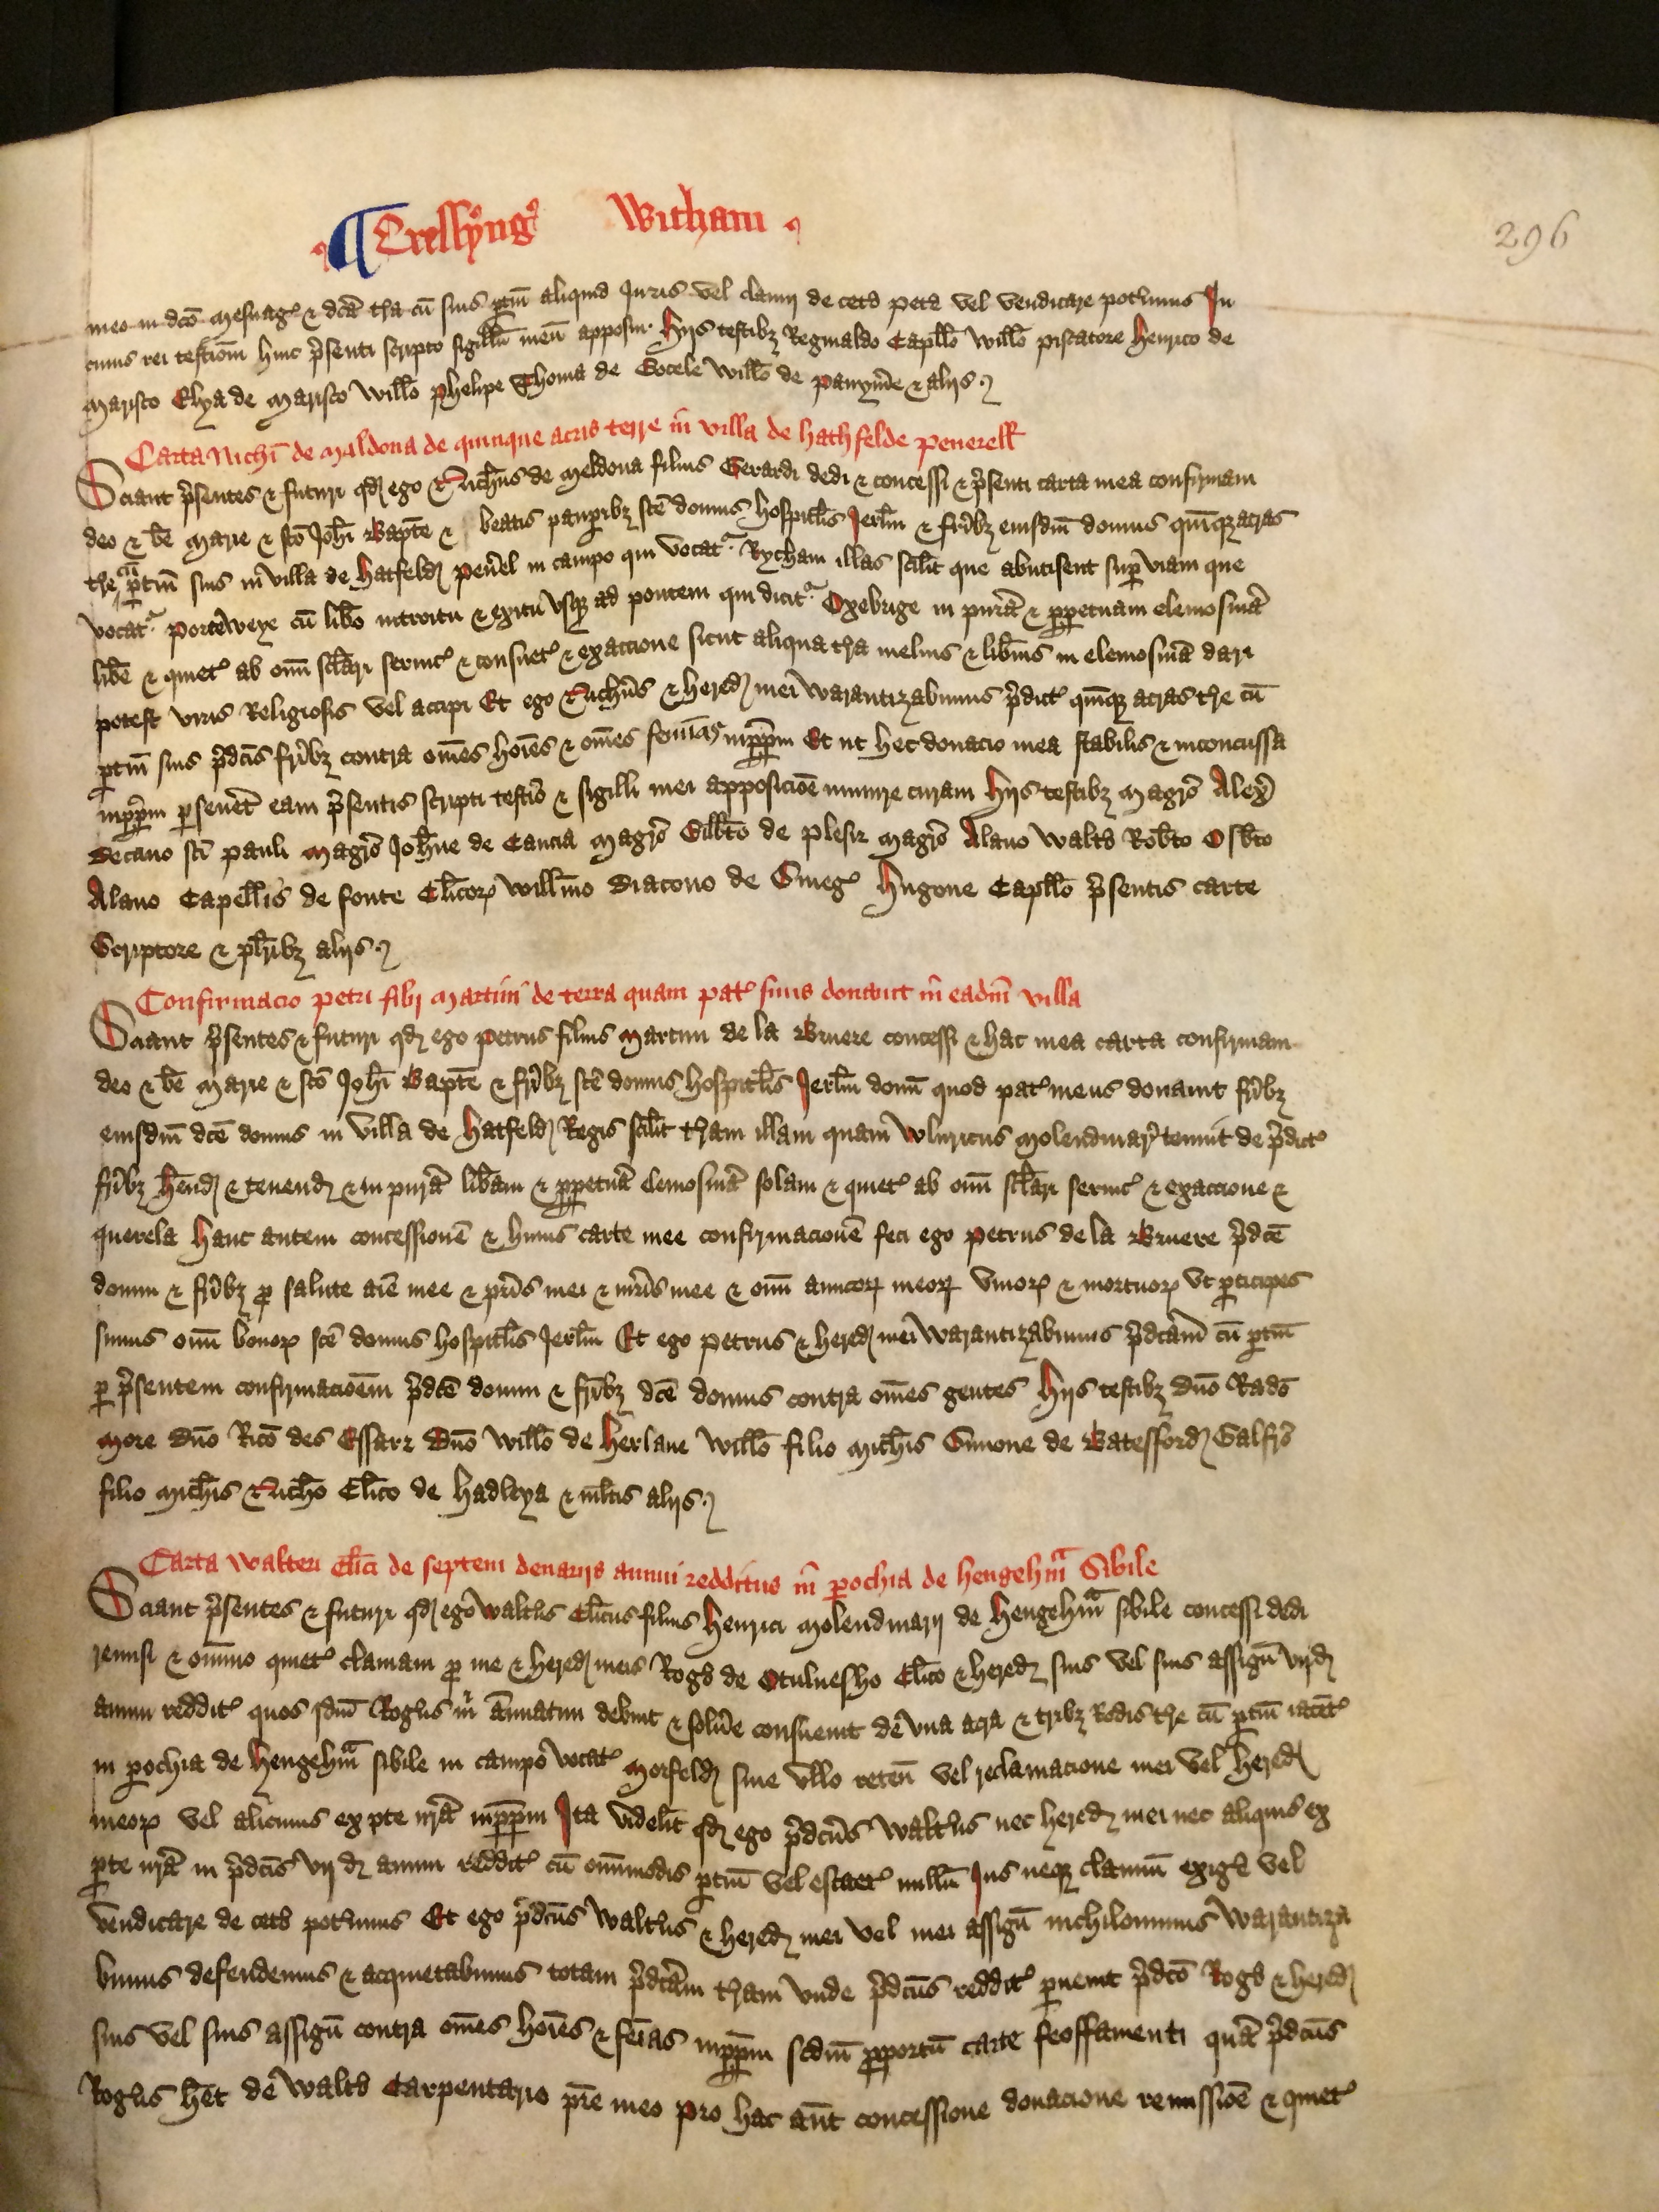 ¶ Cressyng̉ Witham
296
meo in dc̄o Mesuag̉ & dc̄a tr̉a cū suis p̱tiñ aliquid Juris vel clamij de cet̉o pet̉e vel vendicare pot̉imus In
cuius rei testiom̄ huic p̉senti scripto sigillū meū apposui hijs testibꝫ Reginaldo Capll̄o Will̄o piscatore henrico de
Marisco Elya de Marisco Will̄o phelipe Thoma de Cocele Will̄o de panym̉e & alijs
Carta Nich̄i de Maldona de quinque acris terre in̄ villa de hathfelde peuerell̄
Sciant p̉sentes & futuri qđ ego Nich̄us de Meldona filius Gerardi dedi & concessi & p̉senti carta mea confirmaui
deo & bē Marie & sc̄o Joh̄i Bapt̄e & beatis paup̱ibꝫ sc̄e domus hospitl̄is Jerl̄m & fr̄ibꝫ eiusdm̄ domus quinqꝫ acras
tr̉e cū p̱tiñ suis in villa de hatfeld peủel in campo qui vocat᷑ Rycham illas scil̄t que abutisent sup̱ viam que
vocat᷑ portēweye cū lib̄o introitu & exitu vsqꝫ ad pontem qui dicit᷑ Oxebrige in purā & p̱petuam elemosinā
lib̄e & quiet̉ ab om̄i scl̄ari seruic̉ & consuet̉ & exaccione sicut aliqua tr̉a melius & lib̄ius in elemosinā dari
potest viris Religiosis vel accipi Et ego Nich̄us & hered mei Warantizabimus p̉dict̉ quīqꝫ acras tr̉e cū
p̱tiñ suis p̉dc̄is fr̄ibꝫ contra om̄es hoīes & om̄es femīas inp̱p̱m Et ut hec donacio mea stabilis & inconcussa
inp̱p̱m p̱seuēt eam p̉sentis scripti test̄io & sigilli mei apposiciōe munire curaui hijs testibꝫ Magr̄o Alex̉
Decano sc̄i pauli Magr̄o Joh̄ne de Cancia Magr̄o Gilb̄to de plesir Magr̄o Alano Walt̉o Rob̄to Osb̄to
Alano Capell̄is de fonte Cl̄icoꝝ Will̄mo Diacono de Gineg̉ hugone Capll̄o p̉sentis carte
Scriptore & pl̄ribꝫ alijs
Confirmacio petri filij Martini de terra quam pat̉ suus donauit in̄ eadm̄ villa
Sciant p̉sentes & futuri qđ ego petrus filius Martini de la Bruere concessi & hac mea carta confirmaui
deo & bē Marie & sc̄o Joh̄i Bapt̄e & fr̄ibꝫ sc̄e domus hospitl̄is Jerl̄m donū quod pat̉ meus donauit fr̄ibꝫ
eiusdm̄ dc̄e domus in villa de hatfeld Regis scil̄t tr̉am illam quam Wluricus Molendinar̉ tenuit de p̉dict̉
fr̄ibꝫ h̄end & tenend & in purā lib̄am & p̱petuā elemosinā solam & quiet̉ ab om̄i scl̄ari seruic̉ & exaccione &
querela hanc autem concessionē & huius carte mee confirmacionē feci ego petrus de la Bruere p̉dc̄e
domui & fr̄ibꝫ ꝓ salute aīe mee & pr̄is mei & mr̄is mee & om̄i amicoꝝ meoꝝ viuoꝝ & mortuoꝝ vt p̱ticipes
simus om̄i bonoꝝ sc̄e domus hospitl̄is Jerl̄m Et ego petrus & hered mei Warantizabimus p̉dc̄am cū p̱tiñ
p̱ p̉sentem confirmacioēm p̉dc̄e domui & fr̄ibꝫ dc̄e domus contra om̄es gentes hijs testibꝫ dn̄o Rad̄o
More dn̄o Ric̄o des Essarz Dn̄o Will̄o de herlaue Will̄o filio Mich̄is Simone de Batesford Galfr̄o
filio Mich̄is Nich̄o Cl̄ico de hadleya & ml̄tis alijs
Carta Walteri Cl̄ici de septem denarijs annui redditus in̄ p̱ochia de hengehm̄a Sibile
Sciant p̉sentes & futuri qđ ego Walt̉us Cl̄icus filius henrici Molendinarij de hengehm̄a sibile concessi dedi
remisi & omnino quiet̉ clamaui ꝓ me & hered meis Rog̉o de Otuluesho Cl̄ico & hered suis vel suis assigñ vijđ
annui reddit̉ quos idm̄ Rog̉us m̉ annatim debuit & solủe consueuit de vna acra & tribꝫ Rodis tr̉e cū p̱tiñ iacēt̉
in p̱ochia de hengehm̄a sibile in campo vocat̉ Morfeld sine vllo reteñ vel reclamacione mei vel hered
meoꝝ vel alicuius ex p̱te nr̄a inp̱p̱m Ita videl̄t qđ ego p̉dc̄us Walt̉us nec hered mei nec aliquis ex
p̱te nr̄a in p̉dc̄is vij đ annui reddit̉ cū om̄imodis p̱tiñ vel escaet̉ nullū Jus neqꝫ clamiū exig̉e vel
vendicare de cet̉o pot̉imus Et ego p̉dc̄us Walt̉us & hered mei vel mei assigñ nichilominus Warantiza
bimus defendemus & acquietabimus totam p̉dc̄am tr̉am vnde p̉dc̄us reddit̉ p̱uenit p̉dc̄o Rog̉o & hered
suis vel suis assigñ contra om̄es hoīes & feīas inp̱p̱m scdm̄ ꝓportū carte feoffamenti quā p̉dc̄us
Rog̉us h̄et de Walt̉o Carpentario pr̄e meo pro hac aūt concessione donacione remissiōe & quiet̉